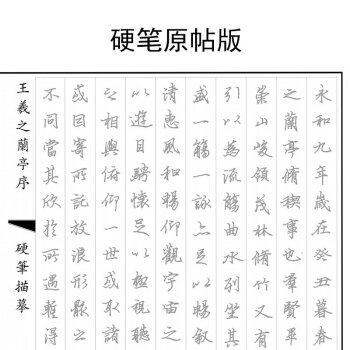 硬笔原帖版
永和九年歲在癸丑暮春
之蘭亭脩稧事也羣賢畢
崇山峻領茂林脩竹又有
引以為流觴曲水列坐其
盛一觴一詠亦足以暢敘
清惠風和暢仰觀宇宙之
以遊目騁懷足以極視聽
之相與俯仰一世或取諸
或因寄所託放浪形骸之
不同當其欣於所遇暫得
王羲之蘭亭序
硬筆描摹